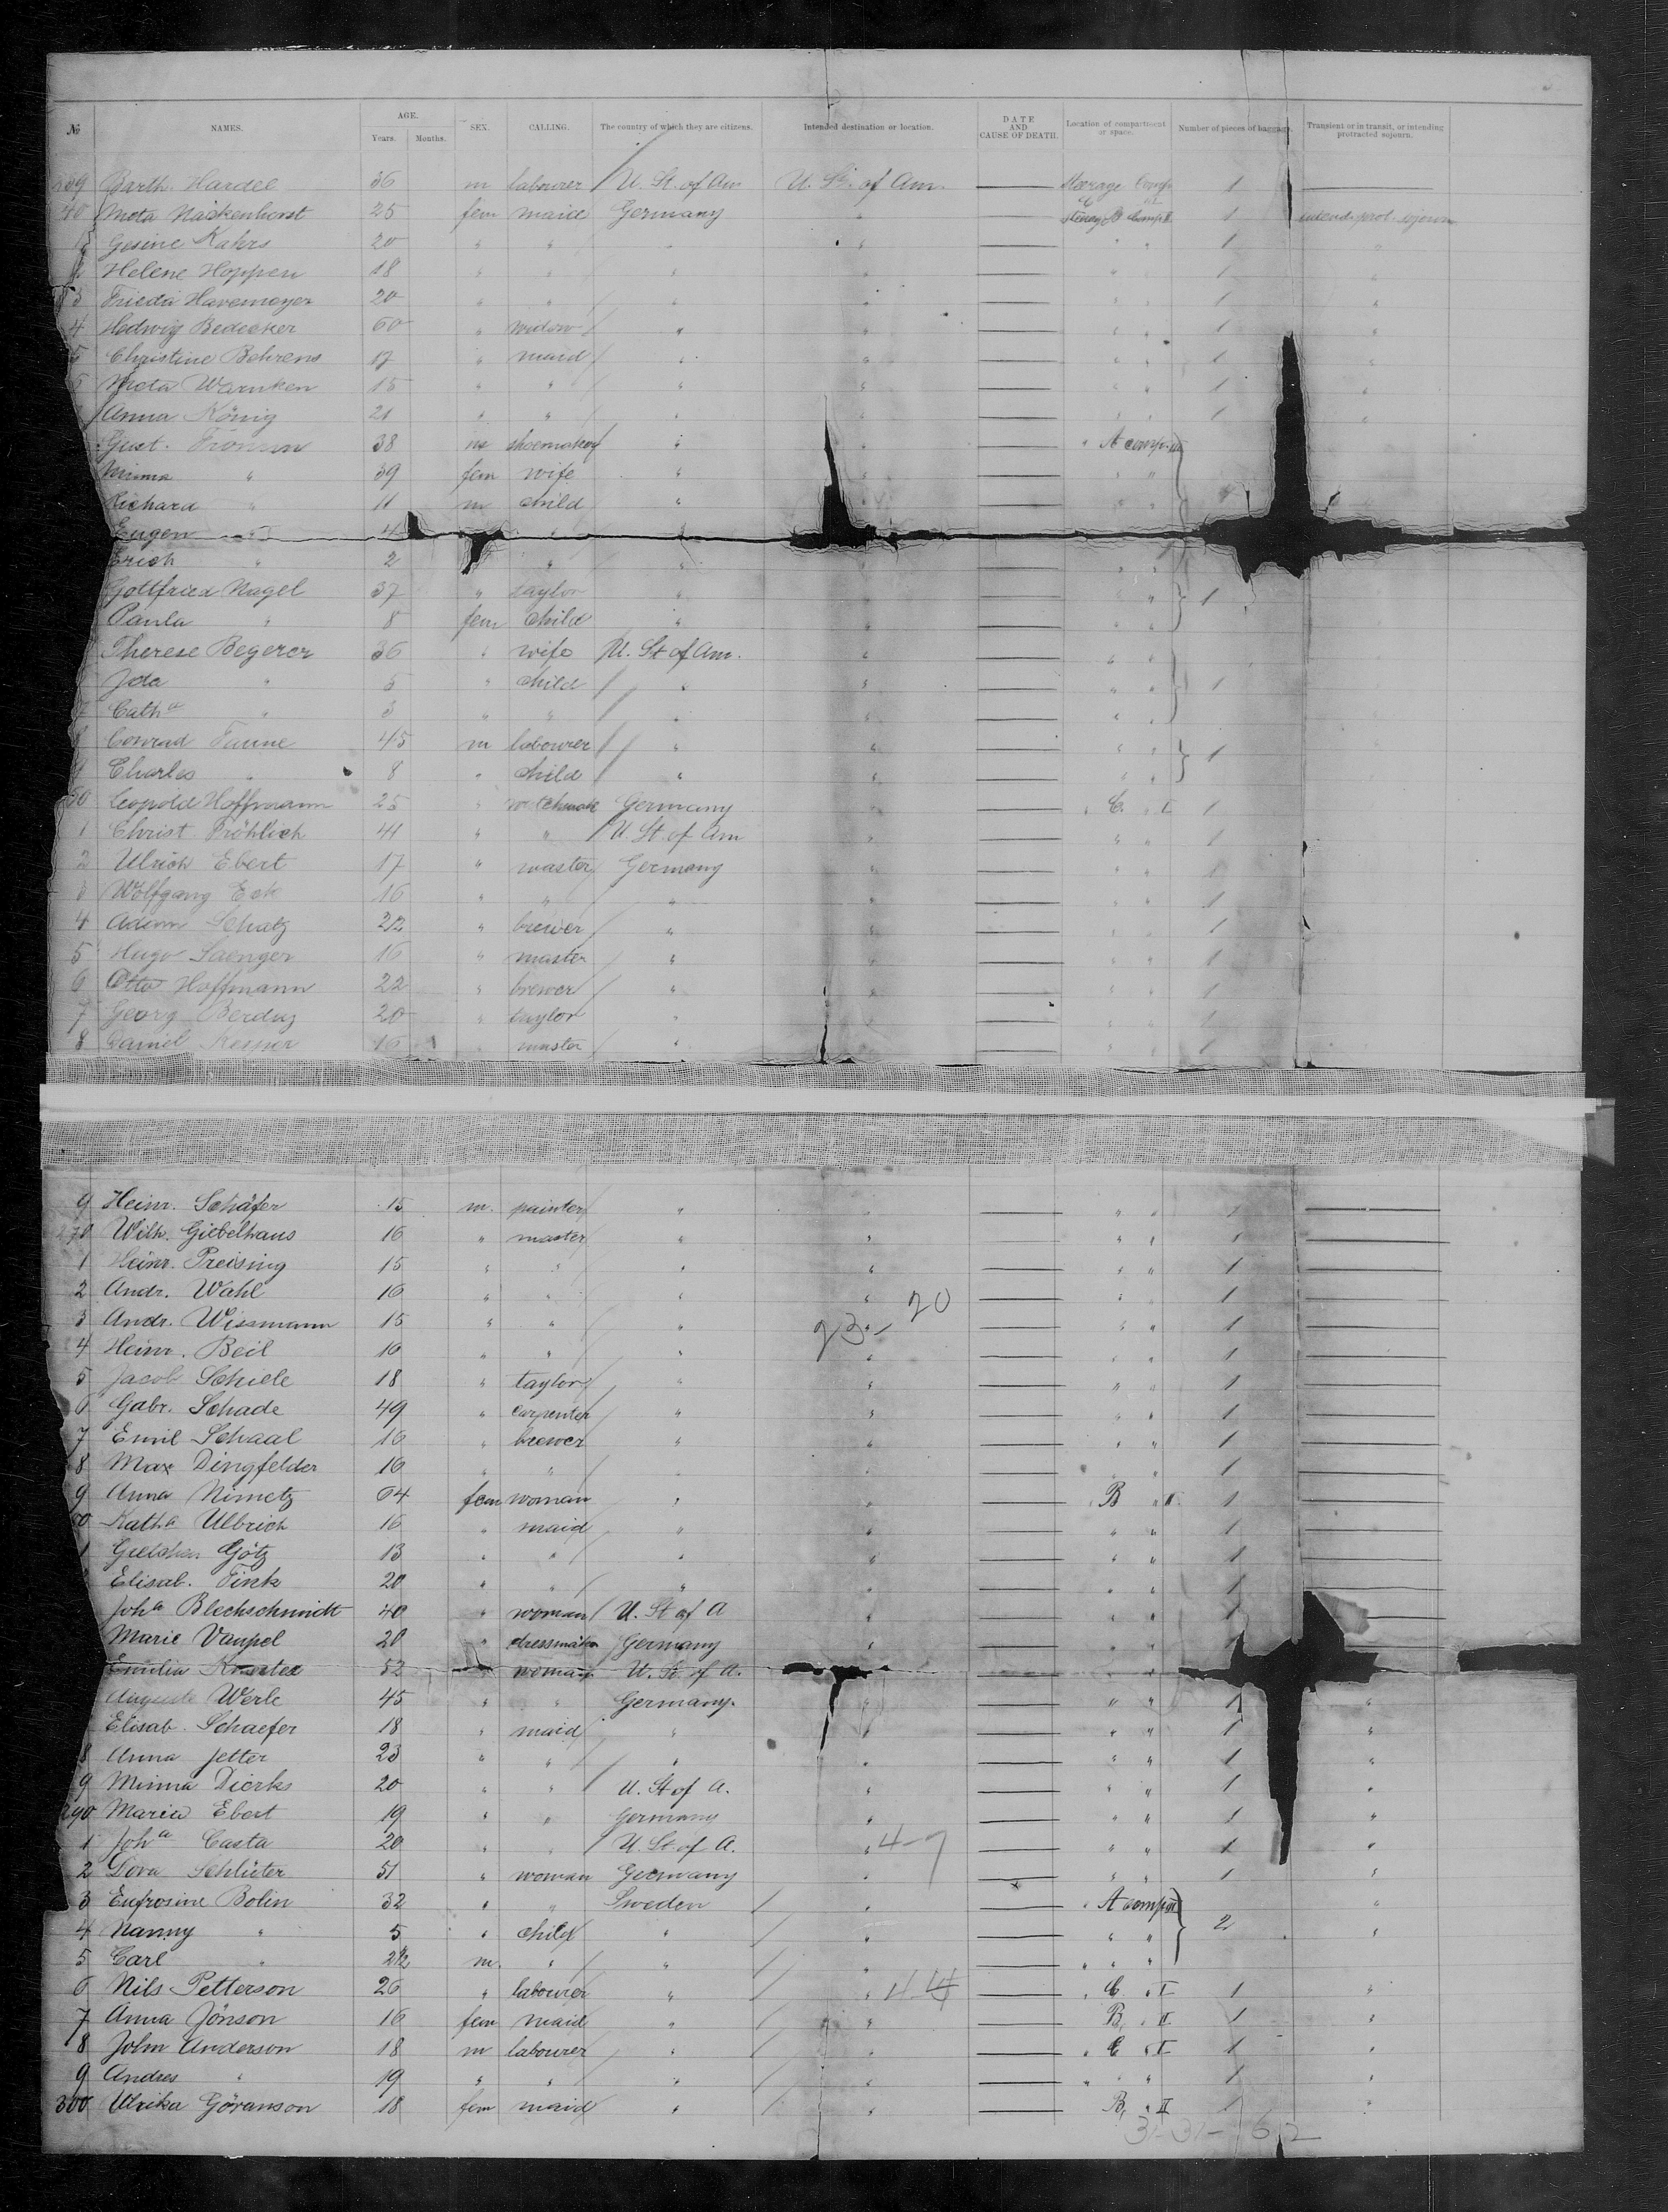 № NAMES. AGE. Years. Months. SEX. CALLING. The country of which they are citizens. Intended destination or location. DATE AND CAUSE OF DEATH. Location of compartment or space. Number of pieces of baggage. Transient or in transit, or intending protracted sojourn.
239 Barth. Hardel 36 m labourer U. St. of Am U. St. of Am. Steerage Comp 1
40 Meta Nackenhorst 25 fem maid Germany " 1 intend. prot. sojourn
Gesine Kahrs 20 " " " " " " 1 "
Helene Hoppen 18 " " " " " " 1 "
3 Frieda Havemeyer 20 " " " " " " 1 "
4 Hedwig Bedecker 60 " widow " " " " 1 "
5 Christine Behrens 17 " maid " " " " 1 "
6 Meta Warnken 15 " " " " " " 1 "
Anna König 21 " " " " " " 1 "
Gust. 38 m shoemaker " " " A comp.
Minna " 39 fem wife " " " "
Richard " 11 m child " " " "
Eugen " 4 " "
Erich " 2 " " " " "
Gottfried Nagel 37 " taylor " " " " 1
Paula " 8 fem child " " " "
Therese Begerer 36 " wife U. St of Am. " " "
Ida " 5 " child " " " " 1
Cath<sup>a</sup> " 3 " " " " " "
8 Conrad Faune 45 m labourer " " " " 1
9 Charles " 8 " child " " " "
60 Leopold Hoffmann 25 " Germany " C. " I 1
1 Christ Fröhlich 41 " " U. St. of Am " " " 1
2 Ulrich Ebert 17 " master Germany " " " 1
3 Wolfgang Eck 16 " " " " " " 1
4 Adam Schatz 22 " brewer " " " " 1
5 Hugo Saenger 16 " master " " " " 1
6 Otto Hoffmann 22 " brewer " " " " 1
7 Georg 20 " taylor " " " " 1
8 Daniel 16 " master " " " " 1
9 Heinr. Schäfer 15 m. painter " " " " 1
270 Wilh. Giebelhaus 16 " master " " " " 1
1 Heinr. Preising 15 " " " " " " 1
2 Andr. Wahl 16 " " " " 20 " " 1
3 Andr. Wissmann 15 " " " 23- " " " 1
4 Heinr. Beil 16 " " " " " " 1
5 Jacob Schiele 18 " taylor " " " " 1
6 Gabr. Schade 49 " carpenter " " " " 1
7 Emil Schaal 16 " brewer " " " " 1
8 Max Dingfelder 16 " " " " " " 1
9 Anna Nimetz 64 fem woman " " " B " II 1
0 Kath<sup>a</sup> Ulbrich 16 " maid " " " " 1
1 Gretchen Götz 13 " " " " " " 1
Elisab. Fink 20 " " " " " " 1
Joh<sup>a</sup> Blechschmidt 40 " woman U. St of A " " " 1
Marie Vaupel 20 " dressmaker Germany " " " 1
Emilia 52 woman U. St. of A. " "
Auguste Werle 45 " " Germany. " " " 1 "
Elisab. Schaefer 18 " maid " " " " 1 "
8 Anna Jetter 23 " " " " " " 1 "
9 Minna Dierks 20 " " U. St of A. " " " 1 "
290 Maria Ebert 19 " " Germany " " " 1 "
1 Joh<sup>a</sup> Casta 20 " " U. St. of A. " 4-7 " " 1 "
2 Dora Schlüter 51 " woman Germany " " " 1 "
3 Eufrosine Bolin 32 " " Sweden " " A comp II "
4 Nanny " 5 " child " " " " 2 "
5 Carl " 2 1/2 m. " " " " " "
6 Nils Petterson 26 " labourer " " " C. " I 1 "
7 Anna Jönson 16 fem maid " " B, " II 1 "
8 John Anderson 18 m labourer " " " C " I 1 "
9 Andres " 19 " " " " " " " 1 "
300 Ulrika Göranson 18 fem maid " " B, " II 1 "
31-31- 62